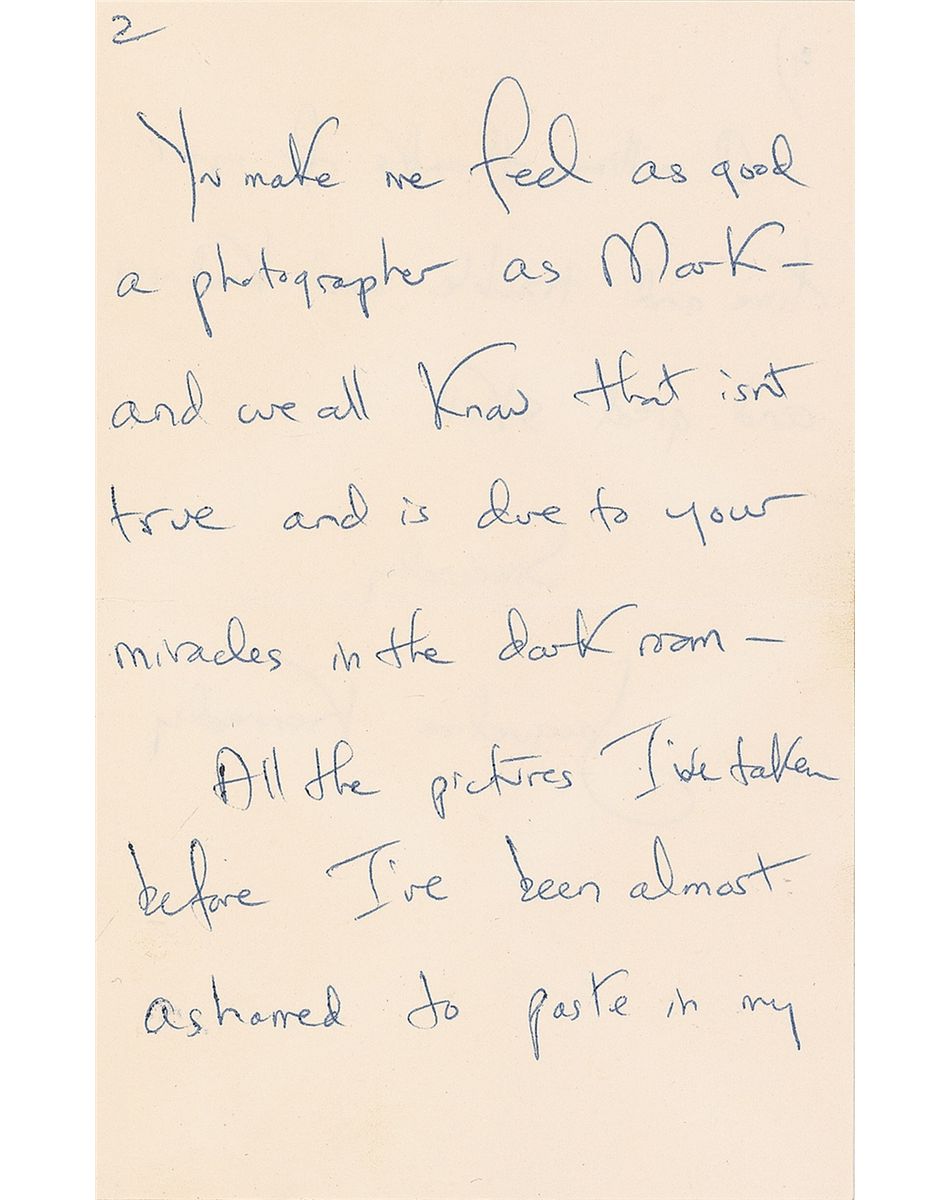 2
You make me feel as good
a photographer as Mark –
and we all know that isnt
true and is due to your
miracles in the dark room –
All the pictures I've taken
before I've been almost
ashamed to paste in my